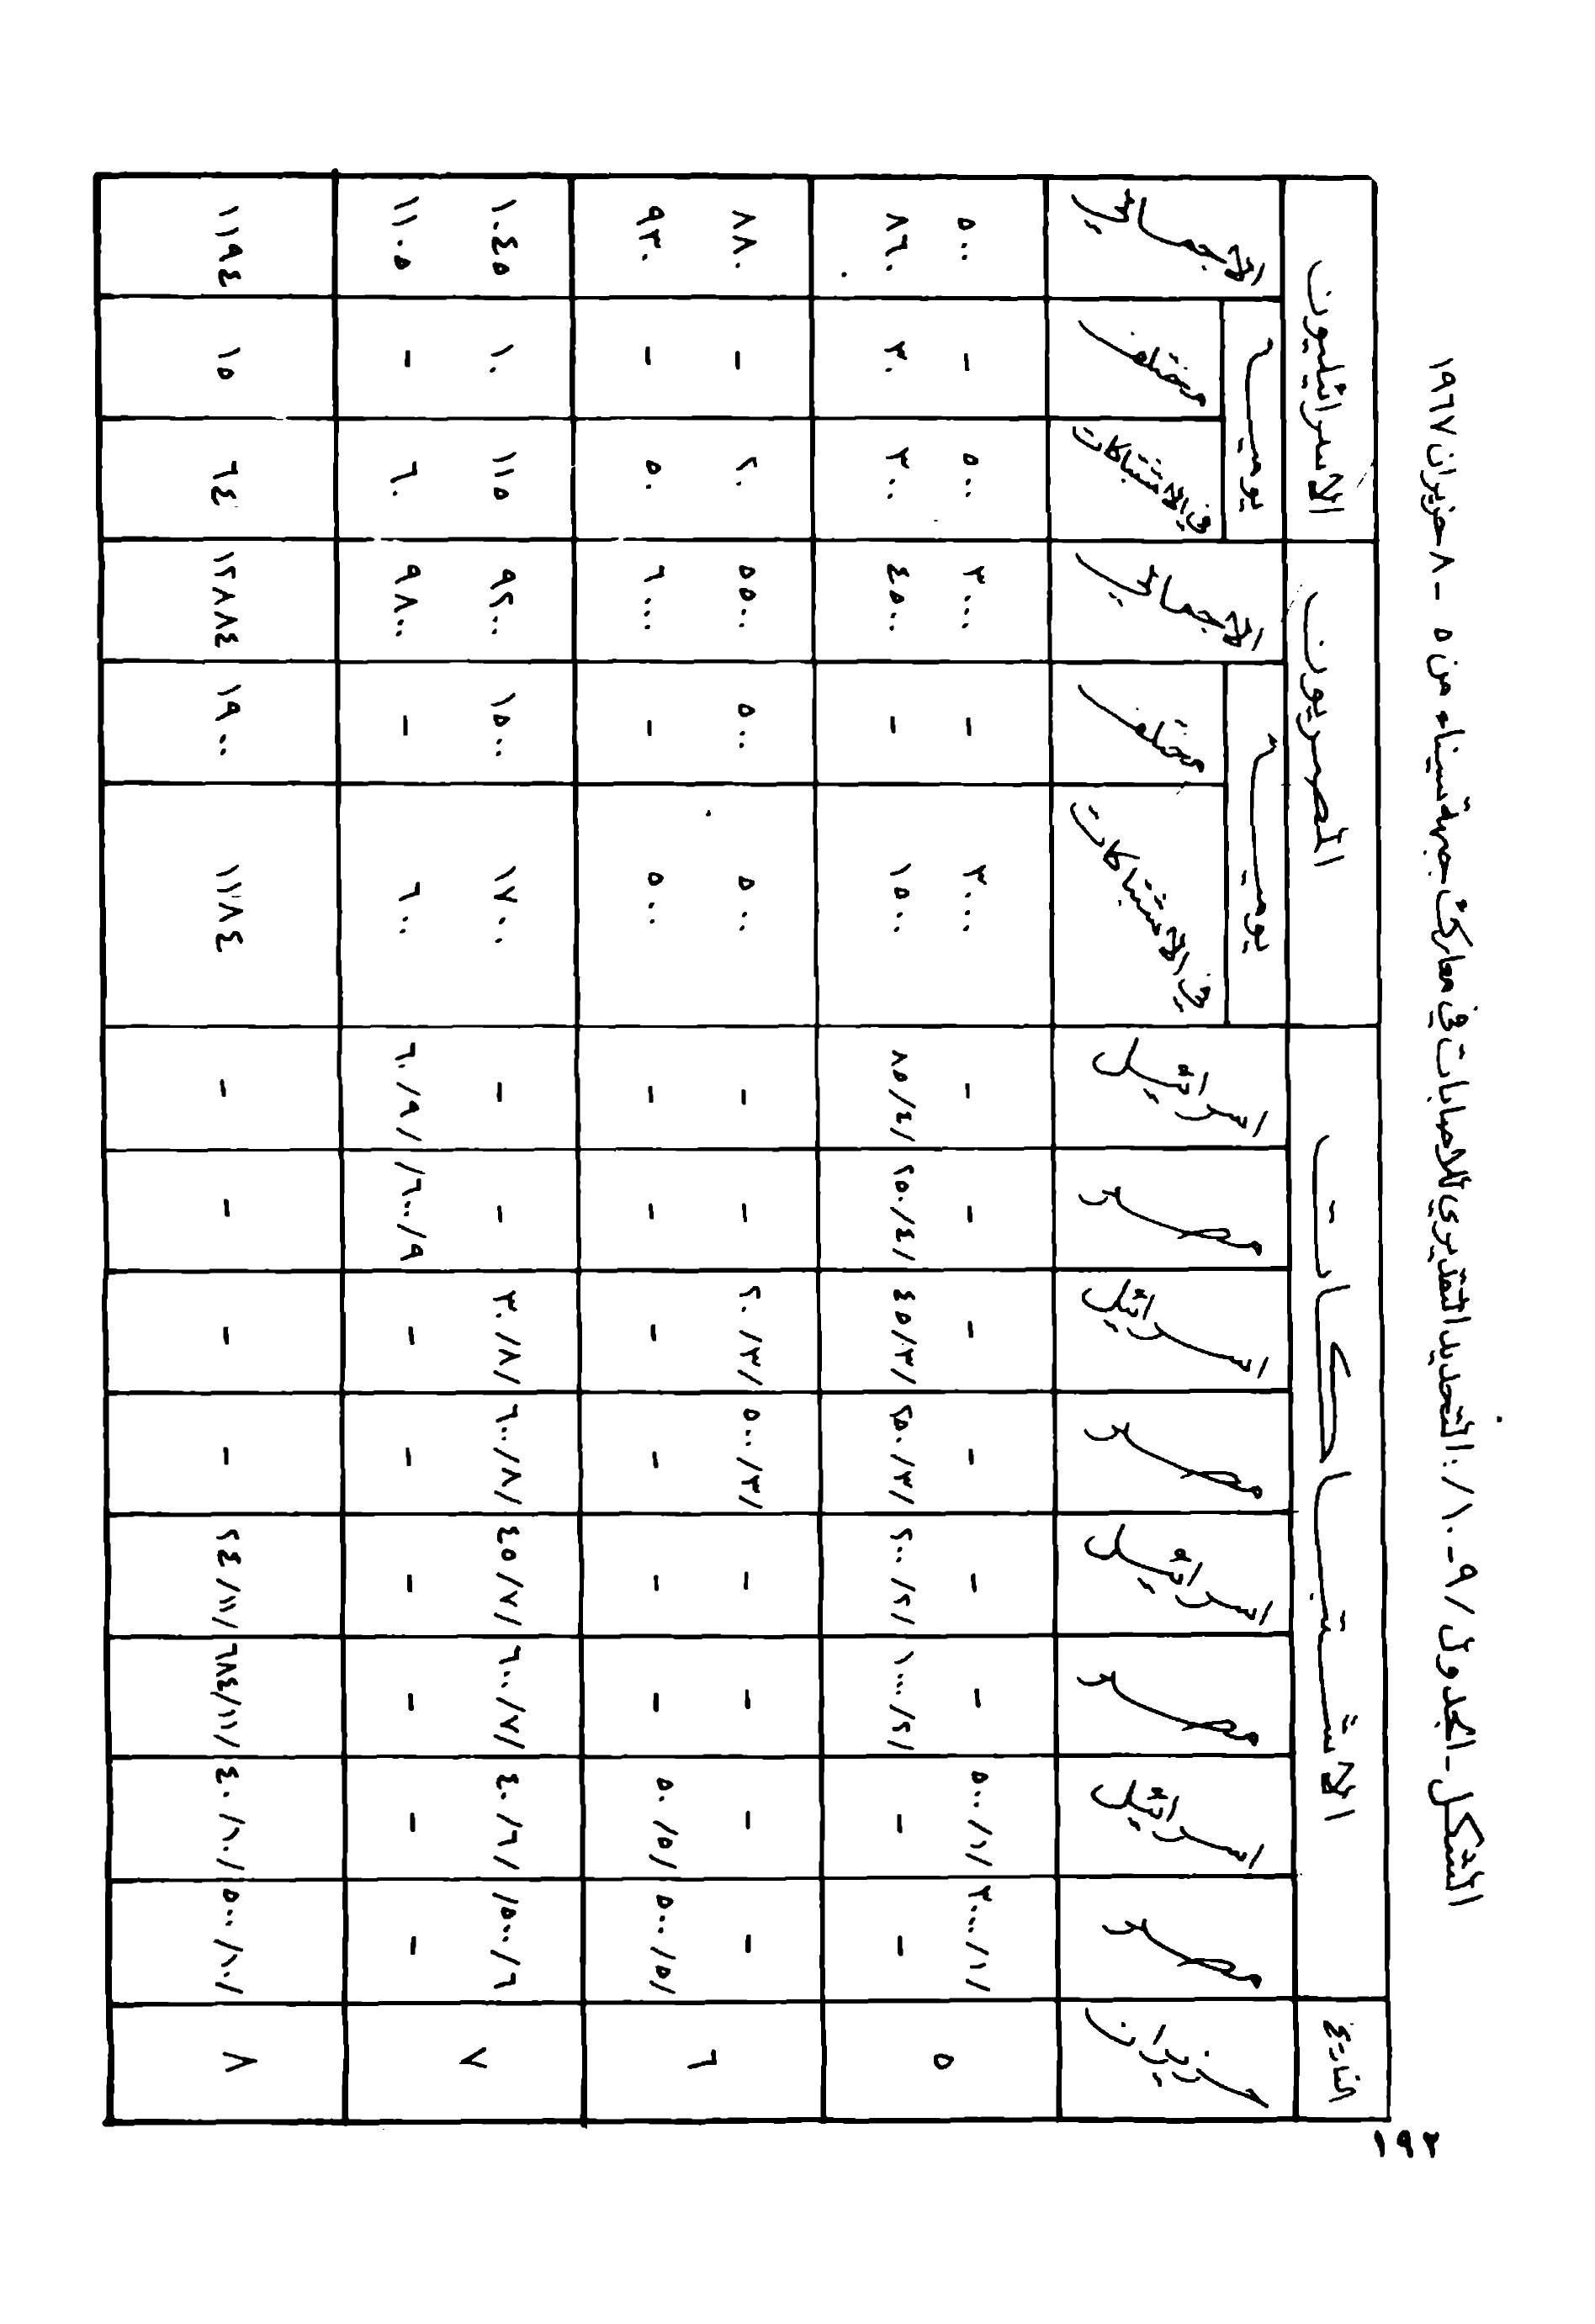 ١٩٢
الشكل - الجدول /٩ - ١٠/: التحديد التقديري للاصابات في معارك جبهة سيناء من ٥ - ٨ حزيران ١٩٦٧
التاريخ الاشتباكات المصريون الاسرائيليون
يومية يومية
حزيران مصر اسرائيل مصر اسرائيل مصر اسرائيل مصر اسرائيل في الاشتباكات مختلفة الاجمالي في الاشتباكات مختلفة الاجمالي
٣٠٠٠/١/ ٥٠٠/١/ - - - - - - ٣٠٠٠ - ٣٠٠٠ ٥٠٠ - ٥٠٠
٥ - - ١٠٠٠/٢/ ٢٠٠/٢/ ٢٥٠/٣/ ٤٥/٣/ ٢٥٠/٤/ ٨٥/٤/ ١٥٠٠ - ٤٥٠٠ ٣٠٠ ٣٠ ٨٦٠
- - - - ٥٠٠/٣/ ٢٠/٣/ - - ٥٠٠ ٥٠٠ ٥٥٠٠ ٢٠ - ٨٨٠
٦ ٥٠٠/٥/ ٥٠/٥/ - - - - - - ٥٠٠ - ٦٠٠٠ ٥٠ - ٩٣٠
/٥٠٠/٦ ٤٠/٦/ ٦٠٠/٧/ ٤٥/٧/ ٦٠٠/٨/ ٣٠/٨/ - - ١٧٠٠ ١٥٠٠ ٩٢٠٠ ١١٥ ١٠ ١٠٤٥
٧ - - - - - - /٦٠٠/٩ ٦٠/٩/ ٦٠٠ - ٩٨٠٠ ٦٠ - ١١٠٥
٨ ٥٠٠/١٠/ ٤٠/١٠/ ٦٨٤/١١/ ٢٤/١١/ - - - - ١١٨٤ ١٩٠٠ ١٢٨٨٤ ٦٤ ١٥ ١١٩٤